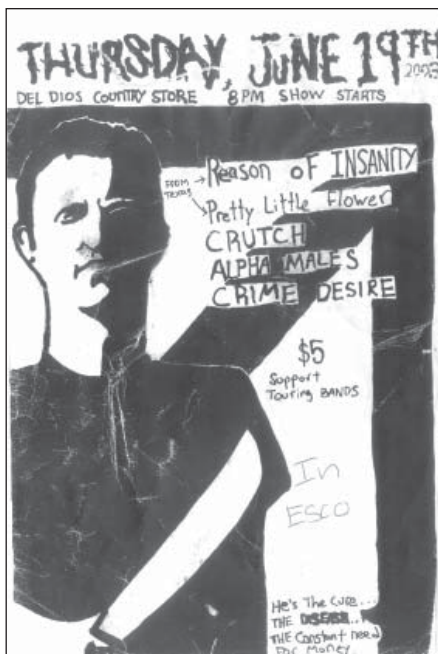 THURSDAY, JUNE 19TH
2003
DEL DIOS COUNTRY STORE 8PM SHOW STARTS
FROM TEXAS
Reason of INSANITY
Pretty Little Flower
CRUTCH
ALPHA MALES
CRIME DESIRE
$5
Support
Touring BANDS
In
ESCO
He's The Cure...
THE DISEASE...
THE Constant need
For Money